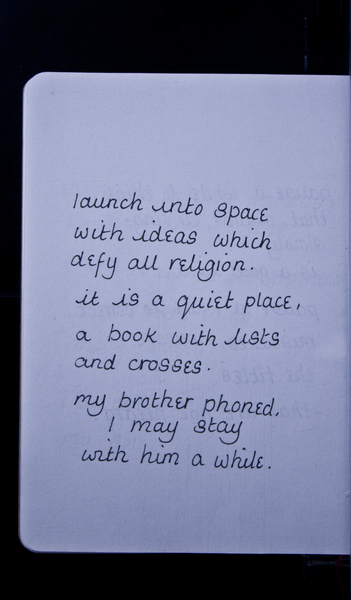 launch into space
with ideas which
defy all religion.
it is a quiet place,
a book with lists
and crosses.
my brother phoned,
I may stay
with him a while.